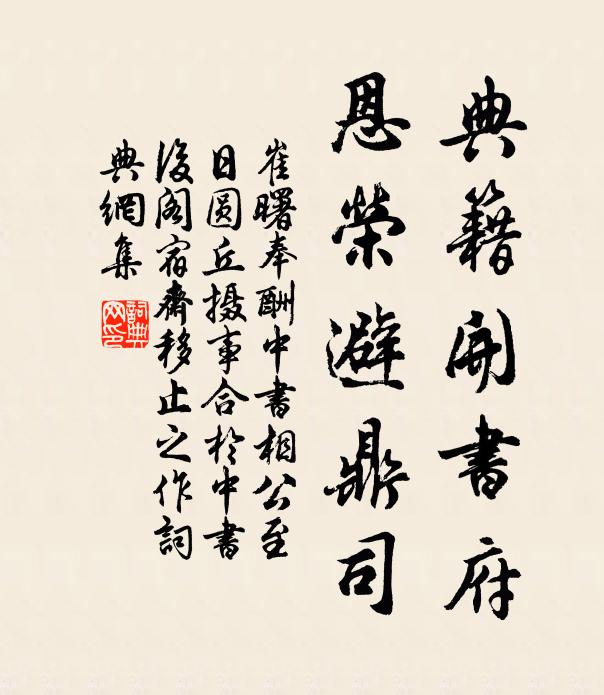 典籍開書府
恩榮避鼎司
崔曙奉酬中書相公至
日圓丘摄事合於中書
後阁宿齋移止之作詞
典網集
詞典網印